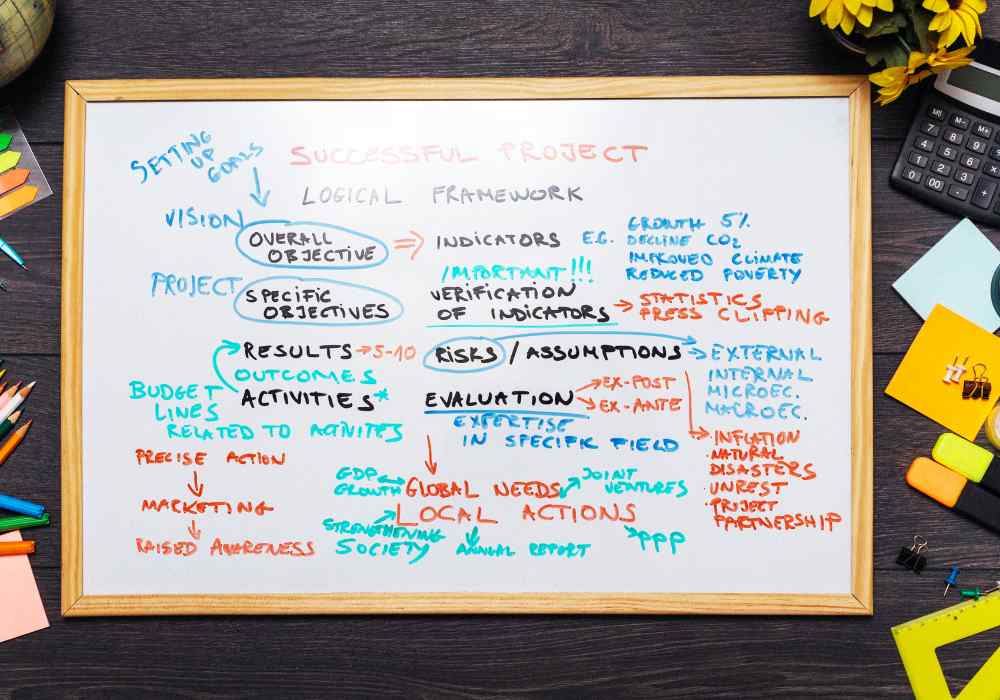 SETTING
UP
GOALS
SUCCESSFUL PROJECT
LOGICAL FRAMEWORK
VISION
OVERALL
OBJECTIVE
INDICATORS E.G.
GROWTH 5%
DECLINE CO2
IMPROVED CLIMATE
REDUCED POVERTY
PROJECT
SPECIFIC
OBJECTIVES
IMPORTANT!!!
VERIFICATION
OF INDICATORS
STATISTICS
PRESS CLIPPING
RESULTS → 5-10
OUTCOMES
ACTIVITIES*
RISKS / ASSUMPTIONS
EXTERNAL
INTERNAL
MICROEC.
MACROEC.
EVALUATION
EX-POST
EX-ANTE
EXPERTISE
IN SPECIFIC FIELD
BUDGET
LINES
RELATED TO ACTIVITES
INFLATION
NATURAL
DISASTERS
UNREST
PROJECT
PARTNERSHIP
PRECISE ACTION
MARKETING
RAISED AWARENESS
GDP
GROWTH
GLOBAL NEEDS
JOINT
VENTURES
LOCAL ACTIONS
STRENGTHENING
SOCIETY
ANNUAL REPORT
PPP
M| M- M+
7 8 9
4 5 6
1 2 3
0 00 . +